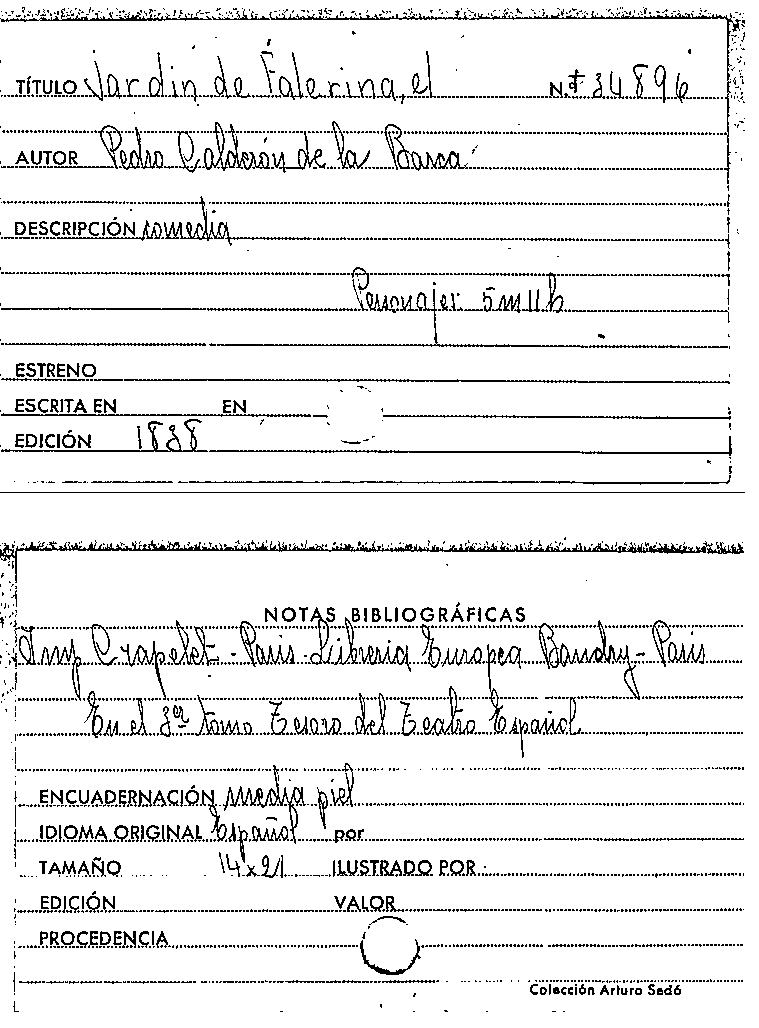 TÍTULO Jardin de Falerina, el N.º 34896
AUTOR Pedro Calderón de la Barca
DESCRIPCIÓN comedia
Personajes: 5 m 11 h
ESTRENO
ESCRITA EN EN
EDICIÓN 1838
NOTAS BIBLIOGRÁFICAS
Imp Crapelet - Paris - Libreria Europea Baudry - Paris
En el 3er tomo Tesoro del Teatro Español
ENCUADERNACIÓN media piel
IDIOMA ORIGINAL Español por
TAMAÑO 14 x 21 ILUSTRADO POR
EDICIÓN VALOR
PROCEDENCIA
Colección Arturo Sedó